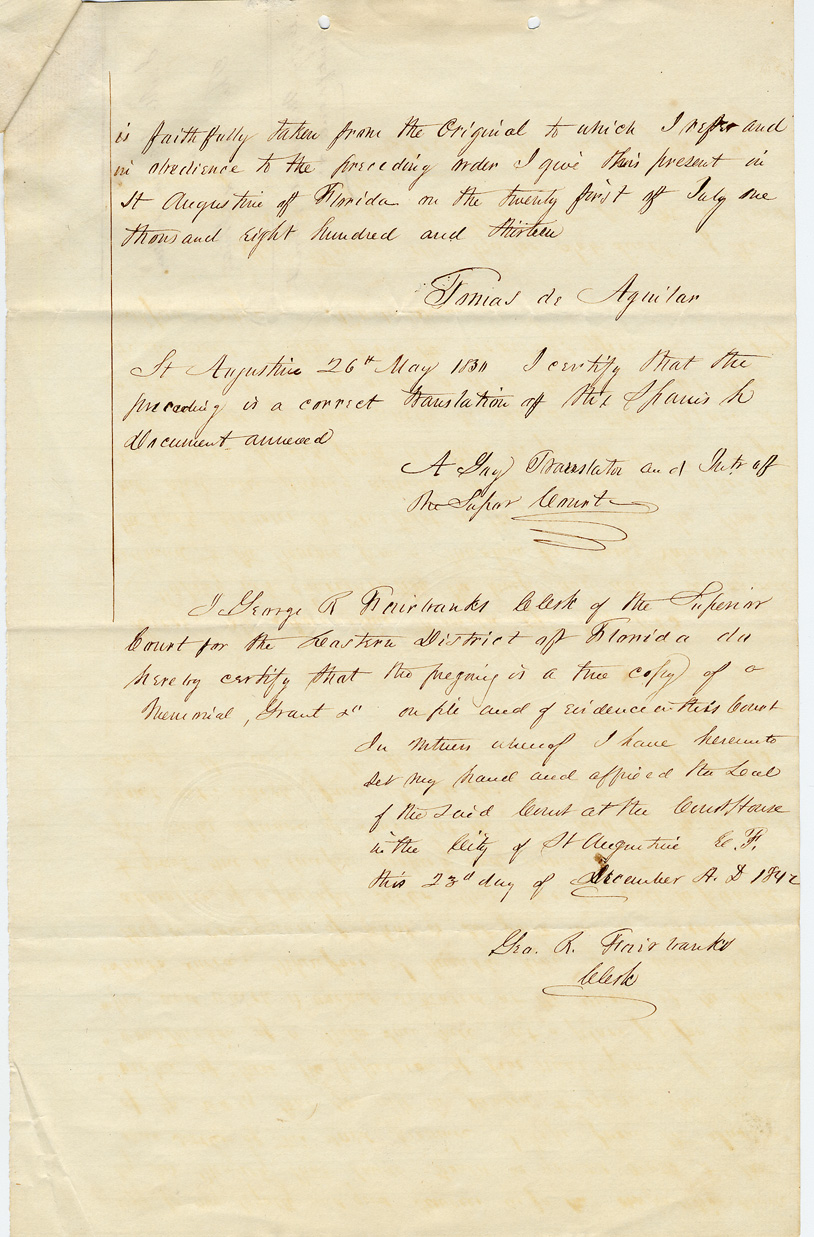 is faithfully taken from the Original to which I refer and
in obedience to the preceding order I give this present in
St Augustine of Florida on the twenty first of July one
thousand eight hundred and thirteen
Tomas de Aguilar
St Augustine 26th May 1830 I certify that the
preceding is a correct translation of the Spanish
document annexed
A Gay Translator and Intr off
the Supor Court
I George R Fairbanks Clerk of the Superior
Court for the Eastern District off Florida do
hereby certify that the foregoing is a true copy of a
Memorial, Grant &c on file and of evidence in this Court
In witness whereof I have hereunto
set my hand and affixed the Seal
of the said Court at the Court House
in the City of St Augustine E. F.
this 23d day of December A. D 1842
Geo. R. Fairbanks
Clerk